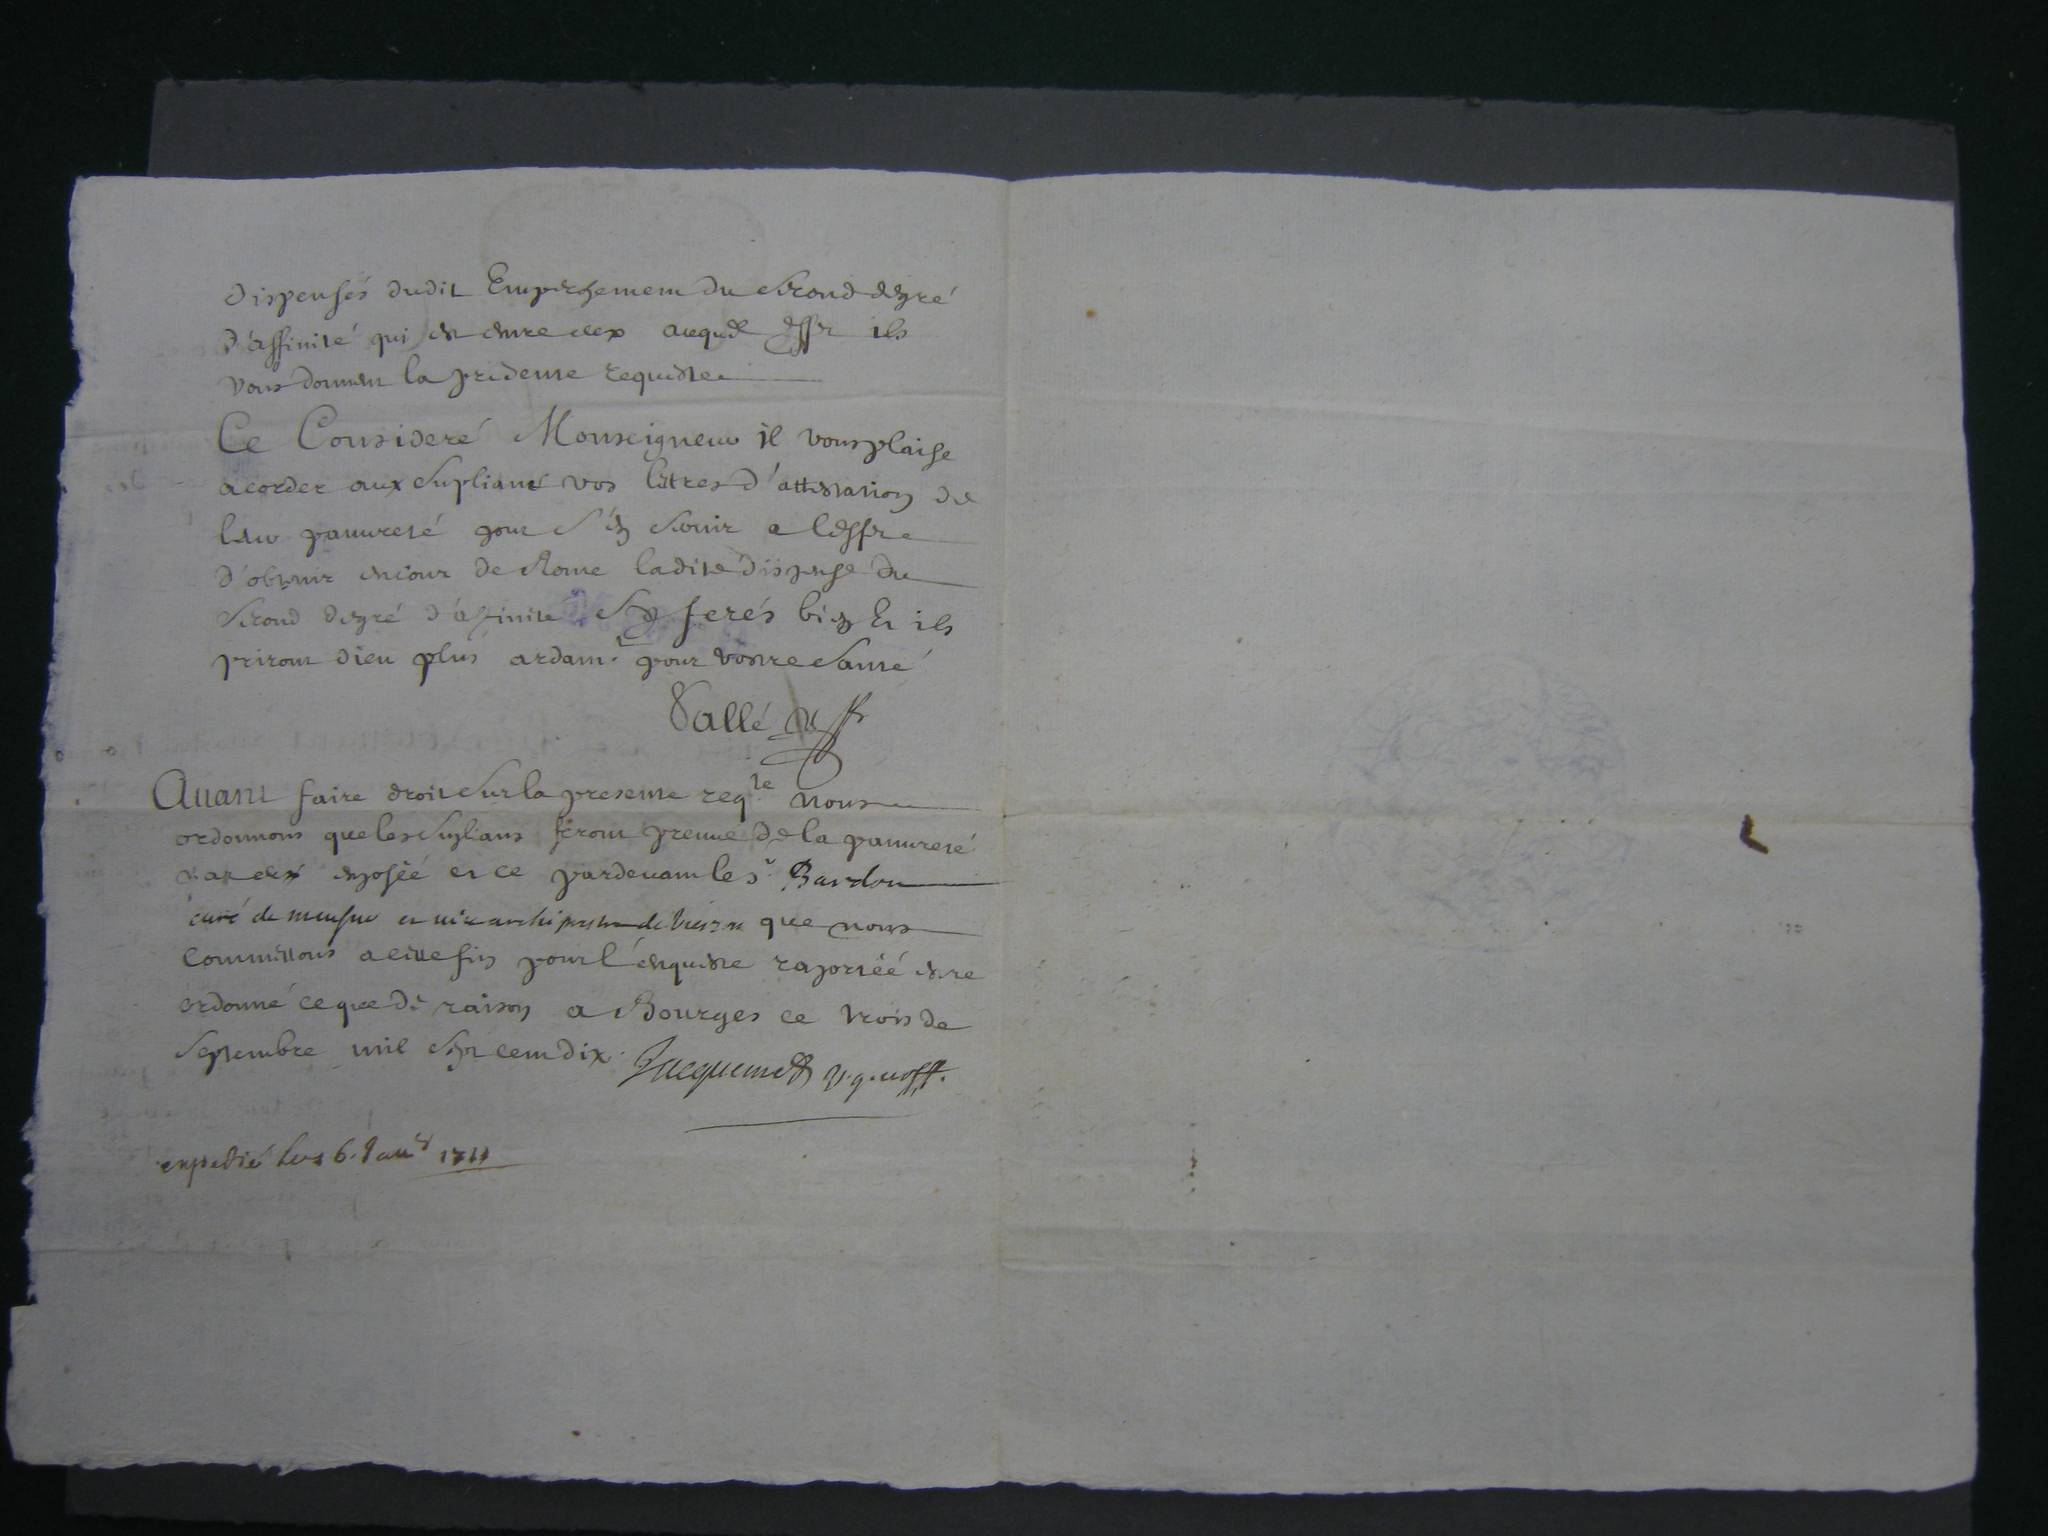 dispensés dudit Empeschement du second degré
d'affinité qui est entre eux auquel effet ils
vous donnent la présente requeste
Ce Consideré Monseigneur il vous plaise
acorder aux supliant vos lettres d'attestation de
leur pauvreté pour s'en servir a l'effet
d'obtenir en cour de Rome ladite dispense du
second degré d'afinité Sy ferés bien Et ils
priront dieu plus ardamt pour vostre santé
Vallé
Auant faire droit sur la presente reqte nous
ordonnons que les suplians feront preuve de la pauvreté
par eux exposéé et ce pardevant le sr Bardon
curé de et vice archiprestre de vierzon que nous
Commettons a cette fin pour l'enqueste raportéé estre
ordonné ce que de raison a Bourges ce trois de
Septembre mil sept cent dix. Jacquemet v. g.
expedié les 6. Janr 1711